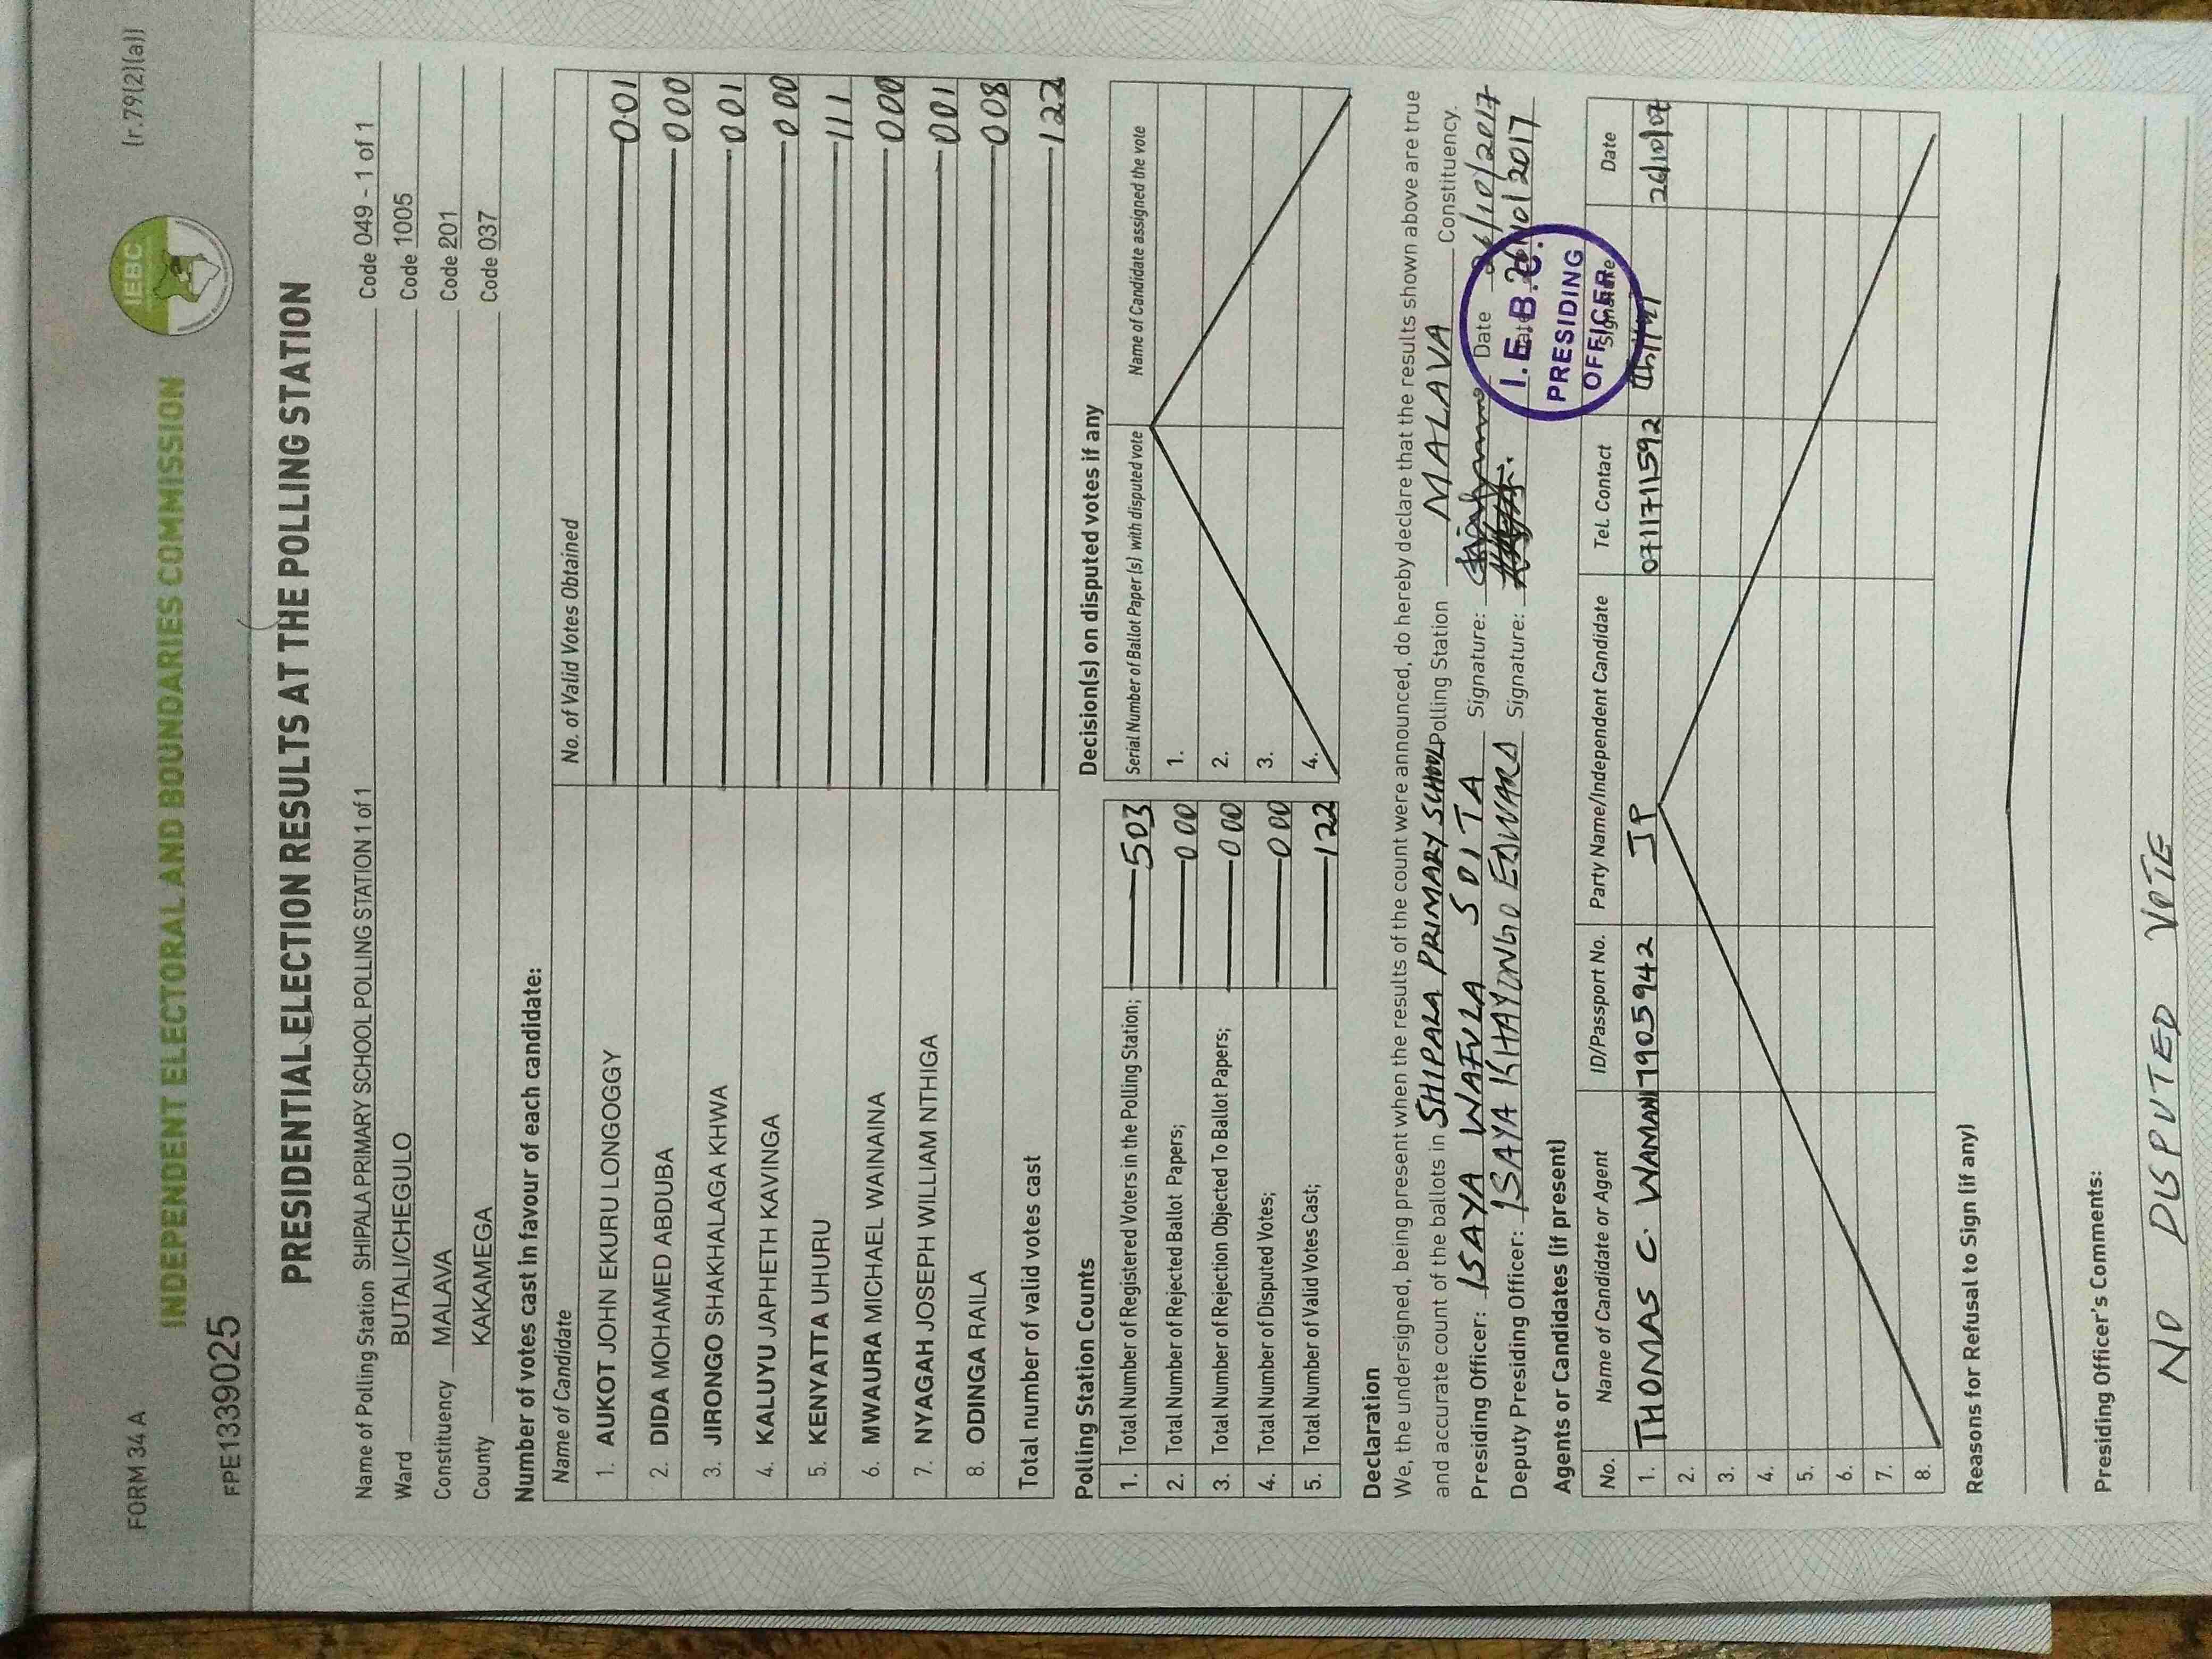 FORM 34 A
(r.79(2)(a))
IEBC
INDEPENDENT ELECTORAL AND BOUNDARIES COMMISSION
FPE1339025
PRESIDENTIAL ELECTION RESULTS AT THE POLLING STATION
Name of Polling Station SHIPALA PRIMARY SCHOOL POLLING STATION 1 of 1 Code 049 - 1 of 1
Ward BUTALI/CHEGULO Code 1005
Constituency MALAVA Code 201
County KAKAMEGA Code 037
Number of votes cast in favour of each candidate:
Name of Candidate No. of Valid Votes Obtained
1. AUKOT JOHN EKURU LONGOGGY 001
2. DIDA MOHAMED ABDUBA 000
3. JIRONGO SHAKHALAGA KHWA 001
4. KALUYU JAPHETH KAVINGA 000
5. KENYATTA UHURU 111
6. MWAURA MICHAEL WAINAINA 000
7. NYAGAH JOSEPH WILLIAM NTHIGA 001
8. ODINGA RAILA 008
Total number of valid votes cast 122
Polling Station Counts
1. Total Number of Registered Voters in the Polling Station; 503
2. Total Number of Rejected Ballot Papers; 000
3. Total Number of Rejection Objected To Ballot Papers; 000
4. Total Number of Disputed Votes; 000
5. Total Number of Valid Votes Cast; 122
Decision(s) on disputed votes if any
Serial Number of Ballot Paper (s) with disputed vote Name of Candidate assigned the vote
1.
2.
3.
4.
Declaration
We, the undersigned, being present when the results of the count were announced, do hereby declare that the results shown above are true
and accurate count of the ballots in SHIPALA PRIMARY SCHOOL Polling Station MALAVA Constituency.
Presiding Officer: ISAYA WAFULA SOITA Signature: Date 26/10/2017
Deputy Presiding Officer: ISAYA KHAYONGO EDWARD Signature: Date 26/10/2017
I.E.B.C.
PRESIDING
OFFICER
Agents or Candidates (if present)
No. Name of Candidate or Agent ID/Passport No. Party Name/Independent Candidate Tel. Contact Signature Date
1. THOMAS C. WAMANI 7905942 JP 0711711592 26/10/07
2.
3.
4.
5.
6.
7.
8.
Reasons for Refusal to Sign (if any)
Presiding Officer's Comments:
NO DISPUTED VOTE